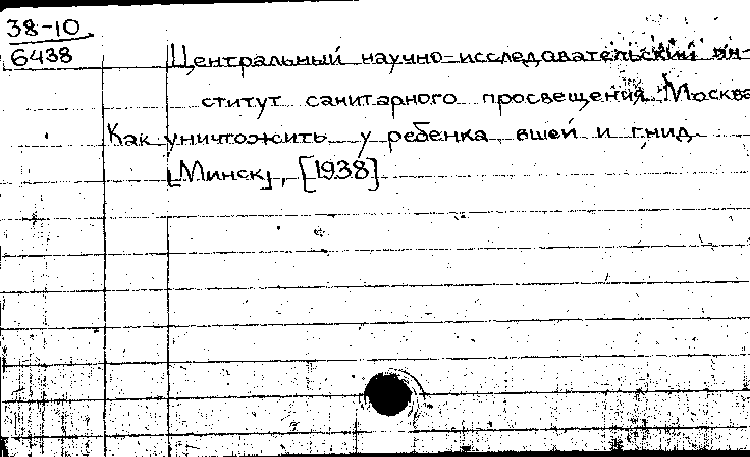 38-10
6438
Центральный научно-исследавательский ин-
ститут санитарного просвещения. Москва
Как уничтожить у ребенка вшей и гнид.
[Минск], [1938]